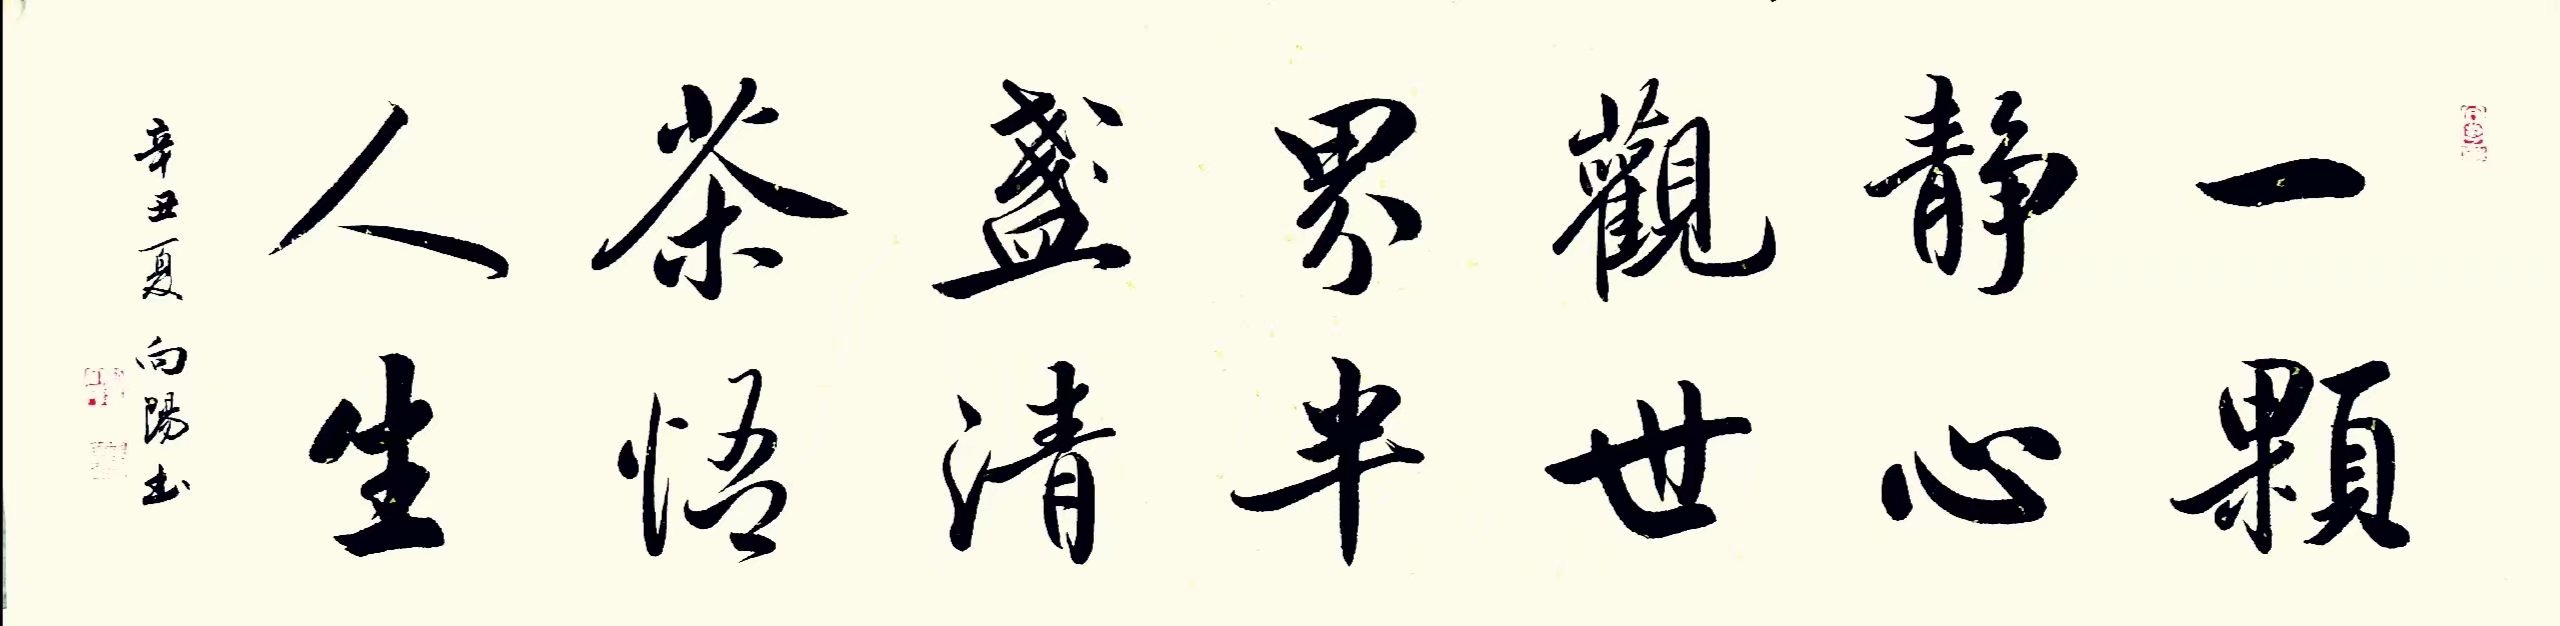 一顆
静心
觀世
界半
盞清
茶悟
人生
辛丑夏向陽书